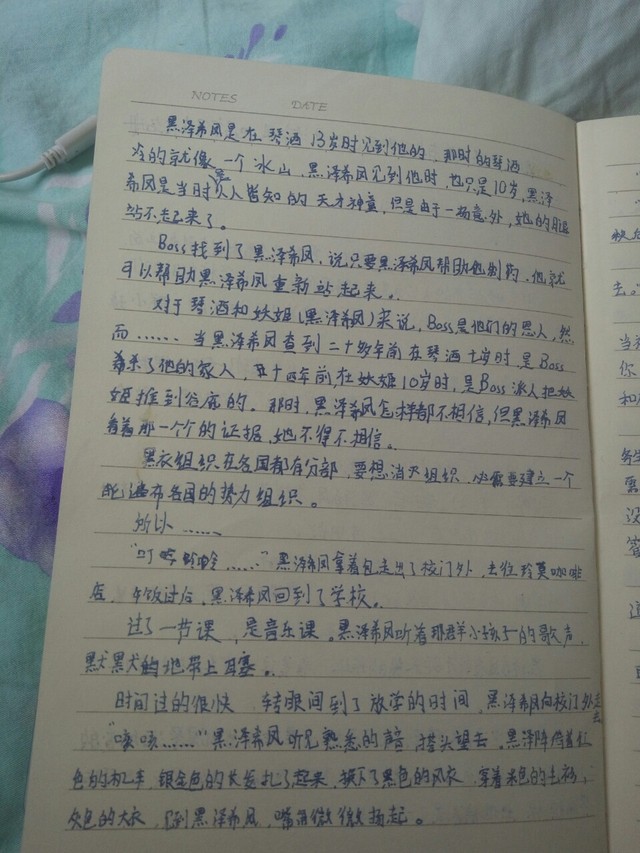 NOTES DATE
黑泽希凤是在琴酒13岁时见到他的，那时的琴酒
冷的就像一个冰山，黑泽希凤见到他时，也只是10岁，黑泽
希凤是当时众人皆知的天才神童，但是由于一场意外，她的腿
站不起来了。
Boss找到了黑泽希凤，说只要黑泽希凤帮助他制药，他就
可以帮助黑泽希凤重新站起来。
对于琴酒和妖姬（黑泽希凤）来说，Boss是他们的恩人，然
而……当黑泽希凤查到二十多年前在琴酒七岁时，是Boss
杀了他的家人，在十四年前，在妖姬10岁时，是Boss派人把妖
姬推到谷底的。那时，黑泽希凤怎样都不相信，但黑泽希凤
看着那一个个的证据，她不得不相信。
黑衣组织在各国都有分部，要想消灭组织，必需要建立一个
能遍布各国的势力组织。
所以……
“叮……”黑泽希凤拿着包走出了校门外，去往玲莫咖啡
店，午饭过后，黑泽希凤回到了学校。
过了一节课，是音乐课。黑泽希凤听着那群小孩子的歌声，
默默的地带上耳塞。
时间过的很快，转眼间到了放学的时间，黑泽希凤向校门外走
去
“咳咳……”黑泽希凤听见熟悉的声音，抬头望去，黑泽阵倚着
色的机车，银金色的长发扎了起来，换下了黑色的风衣，穿着米色的毛衫，
灰色的大衣，见到黑泽希凤，嘴角微微扬起。